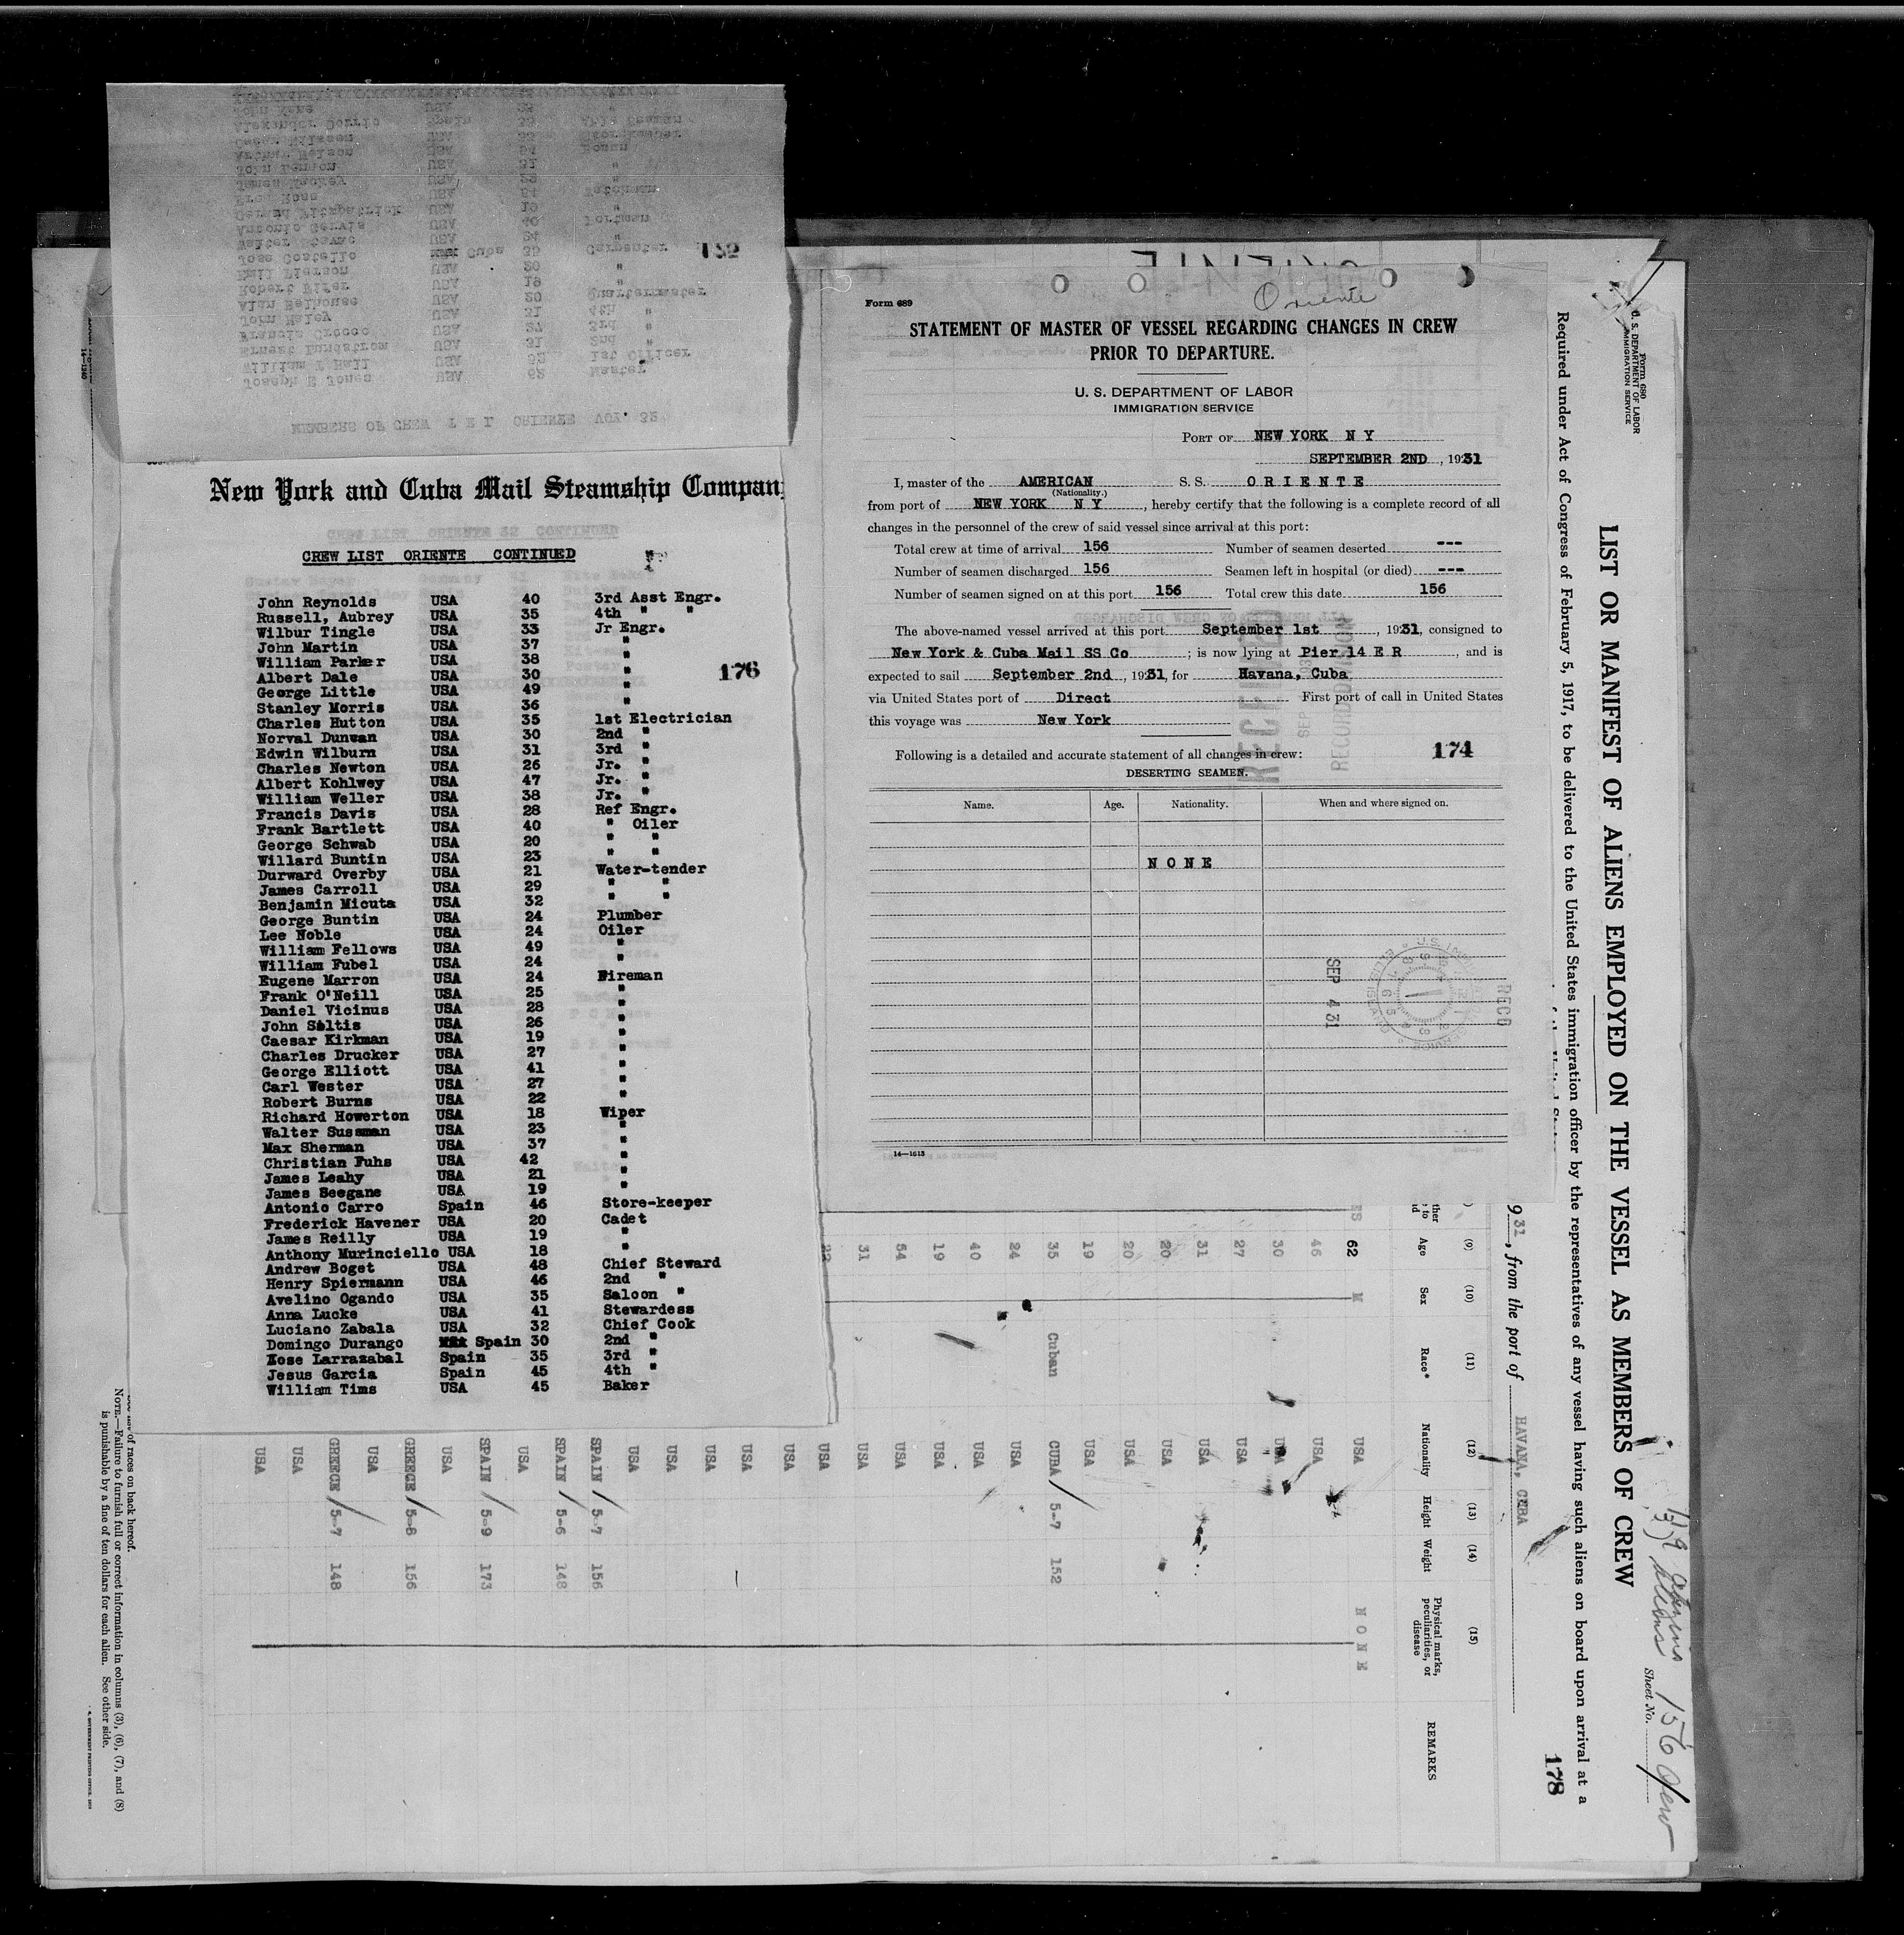 MEMBERS OF CREW T E L ORIENTE VOY. 32
Joseph E Jones USA 62 Master
William L Hall USA 52 1st Officer
Ernest Lundstrom USA 31 2nd "
Francis Crocco USA 27 3rd "
John Haley USA 31 4th "
Alan Belhouse USA 20 Quartermaster
Robert USA 19 "
Emil Pierson USA 20 "
Jose Costello Cuba 35 Carpenter
Walter USA 24 "
Antonio USA 40 Portman
Gerand Fitzpatrick USA 19 "
Fred Rose USA 54 Watchman
James Mackey USA
John Lennon USA 31 "
Arthur Nelson USA 54 Bosun
Nilssen USA
Alexander Spain Able Seaman
John Kane USA
New York and Cuba Mail Steamship Compan
CREW LIST ORIENTE CONTINUED
John Reynolds USA 40 3rd Asst Engr.
Russell, Aubrey USA 35 4th " "
Wilbur Tingle USA 33 Jr Engr.
John Martin USA 37 "
William Parker USA 38 "
Albert Dale USA 30 "
176
George Little USA 49 "
Stanley Morris USA 36 "
Charles Hutton USA 35 1st Electrician
Norval Dunwan USA 30 2nd "
Edwin Wilburn USA 31 3rd "
Charles Newton USA 26 Jr. "
Albert Kohlwey USA 47 Jr. "
William Weller USA 38 Jr. "
Francis Davis USA 28 Ref Engr.
Frank Bartlett USA 40 " Oiler
George Schwab USA 20 " "
Willard Buntin USA 23 " "
Durward Overby USA 21 Water-tender
James Carroll USA 29 " "
Benjamin Micuta USA 32 " "
George Buntin USA 24 Plumber
Lee Noble USA 24 Oiler
William Fellows USA 49 "
William Fubel USA 24 "
Eugene Marron USA 24 Fireman
Frank O'Neill USA 25 "
Daniel Vicinus USA 28 "
John Soltis USA 26 "
Caesar Kirkman USA 19 "
Charles Drucker USA 27 "
George Elliott USA 41 "
Carl Wester USA 27 "
Robert Burns USA 22 "
Richard Howerton USA 18 Wiper
Walter Sussman USA 23 "
Max Sherman USA 37 "
Christian Fuhs USA 42 "
James Leahy USA 21 "
James Seegane USA 19 "
Antonio Carro Spain 46 Store-keeper
Frederick Havener USA 20 Cadet
James Reilly USA 19 "
Anthony Murinciello USA 18 "
Andrew Boget USA 48 Chief Steward
Henry Spiermann USA 46 2nd "
Avelino Ogando USA 35 Saloon "
Anna Lucke USA 41 Stewardess
Luciano Zabala USA 32 Chief Cook
Domingo Durango Spain 30 2nd "
Jose Larrazabal Spain 35 3rd "
Jesus Garcia Spain 45 4th "
William Tims USA 45 Baker
Oriente
Form 689
STATEMENT OF MASTER OF VESSEL REGARDING CHANGES IN CREW
PRIOR TO DEPARTURE.
U. S. DEPARTMENT OF LABOR
IMMIGRATION SERVICE
PORT OF NEW YORK N Y
SEPTEMBER 2ND, 1931
I, master of the AMERICAN S. S. ORIENTE
(Nationality.)
from port of NEW YORK N Y, hereby certify that the following is a complete record of all
changes in the personnel of the crew of said vessel since arrival at this port:
Total crew at time of arrival 156 Number of seamen deserted ---
Number of seamen discharged 156 Seamen left in hospital (or died) ---
Number of seamen signed on at this port 156 Total crew this date 156
The above-named vessel arrived at this port September 1st, 1931, consigned to
New York & Cuba Mail SS Co; is now lying at Pier 14 E R, and is
expected to sail September 2nd, 1931, for Havana, Cuba
via United States port of Direct First port of call in United States
this voyage was New York
Following is a detailed and accurate statement of all changes in crew: 174
DESERTING SEAMEN.
Name. Age. Nationality. When and where signed on.
NONE
SEP 4 31
RECD
14—1613
Form 680
U. S. DEPARTMENT OF LABOR
IMMIGRATION SERVICE
LIST OR MANIFEST OF ALIENS EMPLOYED ON THE VESSEL AS MEMBERS OF CREW
Required under Act of Congress of February 5, 1917, to be delivered to the United States immigration officer by the representatives of any vessel having such aliens on board upon arrival at a
Sheet No.
156 Crew
178
931, from the port of HAVANA, CUBA
(9) (10) (11) (12) (13) (14) (15)
Age Sex Race* Nationality Height Weight Physical marks, peculiarities, or disease REMARKS
62 M USA NONE
46 USA
30 USA
27 USA
31 USA
20 USA
20 USA
19 USA
35 Cuban CUBA 5-7 152
24 USA
40 USA
19 USA
54 USA
31 USA
22 USA
USA
USA
USA
USA
USA
SPAIN 5-7 156
SPAIN 5-6 148
USA
SPAIN 5-9 173
USA
GREECE 5-8 156
USA
GREECE 5-7 148
USA
USA
of races on back hereof.
NOTE.—Failure to furnish full or correct information in columns (3), (6), (7), and (8)
is punishable by a fine of ten dollars for each alien. See other side.